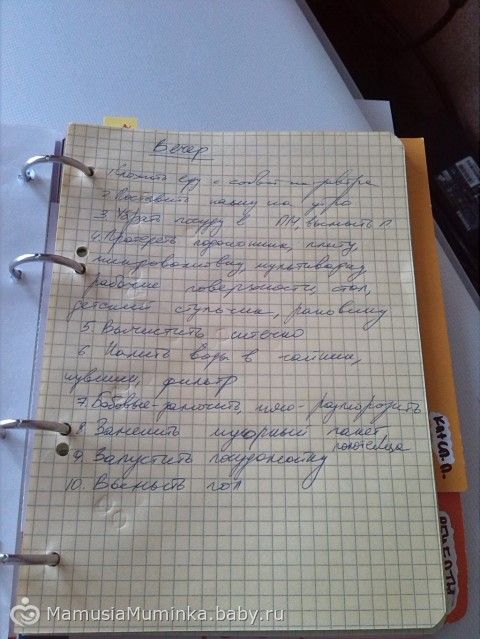 Вечер
1. Сложить еду с собой на завтра
2. Поставить кашу на утро
3. Убрать посуду в ПМ,
4. Протереть подоконник, плиту,
микроволновку, мультиварку,
рабочие поверхности, стол,
детский стульчик, раковину
5. Вычистить ситечко
6. Налить воды в чайник,
кувшин, фильтр
7. Бобовые - замочить, мясо - разморозить
8. Заменить мусорный пакет
полотенца
9. Запустить посудомойку
10. Вымыть пол
MamusiaMuminka.baby.ru